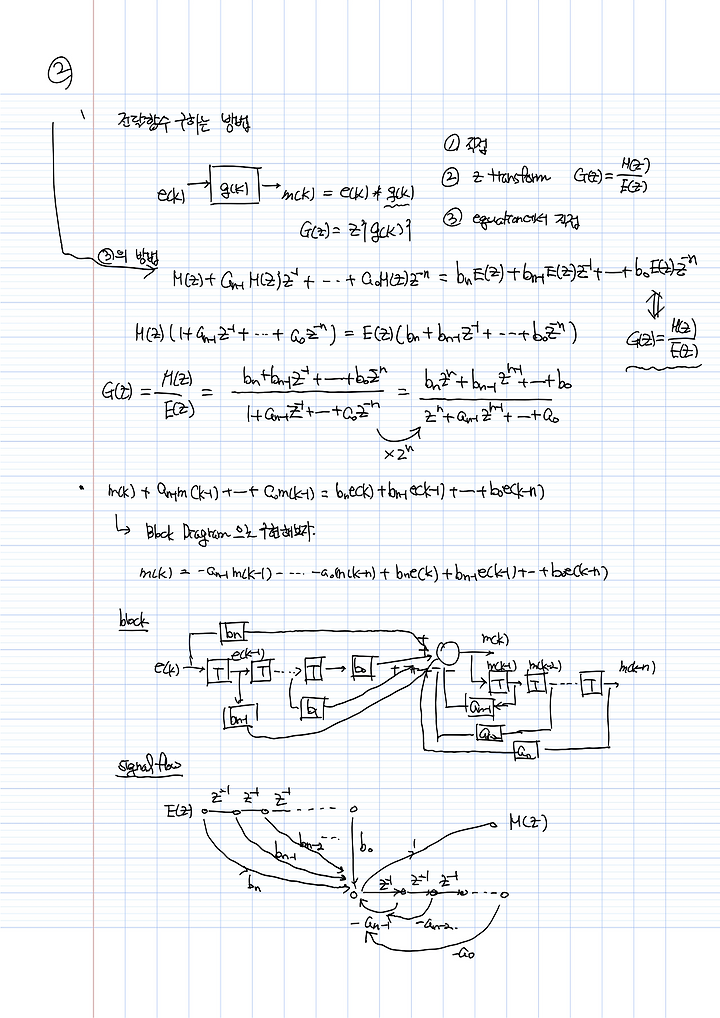 ②
전달함수 구하는 방법
① 직접
② z transform G(z) = M(z)/E(z)
③ equation에서 직접
e(k) → g(k) → m(k) = e(k) * g(k)
G(z) = Z{g(k)}
③의 방법
M(z) + a_{n-1} M(z)z^{-1} + ... + a_0 M(z)z^{-n} = b_n E(z) + b_{n-1} E(z)z^{-1} + ... + b_0 E(z)z^{-n}
⇕
G(z) = M(z)/E(z)
M(z)(1 + a_{n-1}z^{-1} + ... + a_0 z^{-n}) = E(z)(b_n + b_{n-1}z^{-1} + ... + b_0 z^{-n})
G(z) = M(z)/E(z) = (b_n + b_{n-1}z^{-1} + ... + b_0 z^{-n})/(1 + a_{n-1}z^{-1} + ... + a_0 z^{-n}) = (b_n z^n + b_{n-1} z^{n-1} + ... + b_0)/(z^n + a_{n-1} z^{n-1} + ... + a_0)
× z^n
• m(k) + a_{n-1}m(k-1) + ... + a_0 m(k-n) = b_n e(k) + b_{n-1} e(k-1) + ... + b_0 e(k-n)
↳ Block Diagram 으로 구현해보자.
m(k) = -a_{n-1} m(k-1) - ... - a_0 m(k-n) + b_n e(k) + b_{n-1} e(k-1) + ... + b_0 e(k-n)
block
b_n
m(k)
e(k) T e(k-1) T ... T b_0
m(k-1) m(k-2) m(k-n)
T T ... T
b_{n-1} b_1 a_{n-1}
a_n
signal flow
E(z) z^{-1} z^{-1} z^{-1} ...
M(z)
b_n b_{n-1} b_{n-2} ... b_0
1
z^{-1} z^{-1} z^{-1} ...
-a_{n-1} -a_{n-2}
-a_0